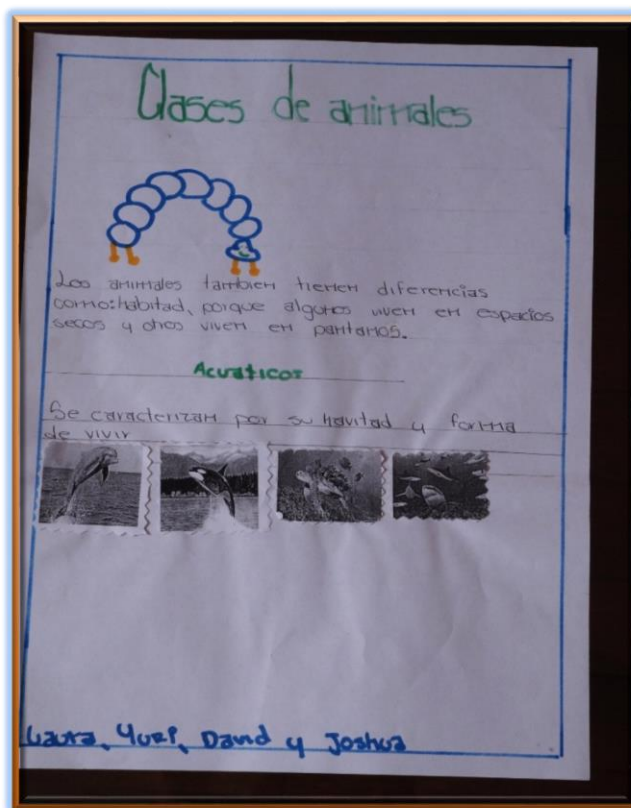 Clases de animales
Los animales tambien tienen diferencias
como: habitad, porque algunos viven en espacios
secos y otros viven en pantanos.
Acuaticos
Se caracterizan por su havitad y forma
de vivir
Laura, Yuri, David y Joshua